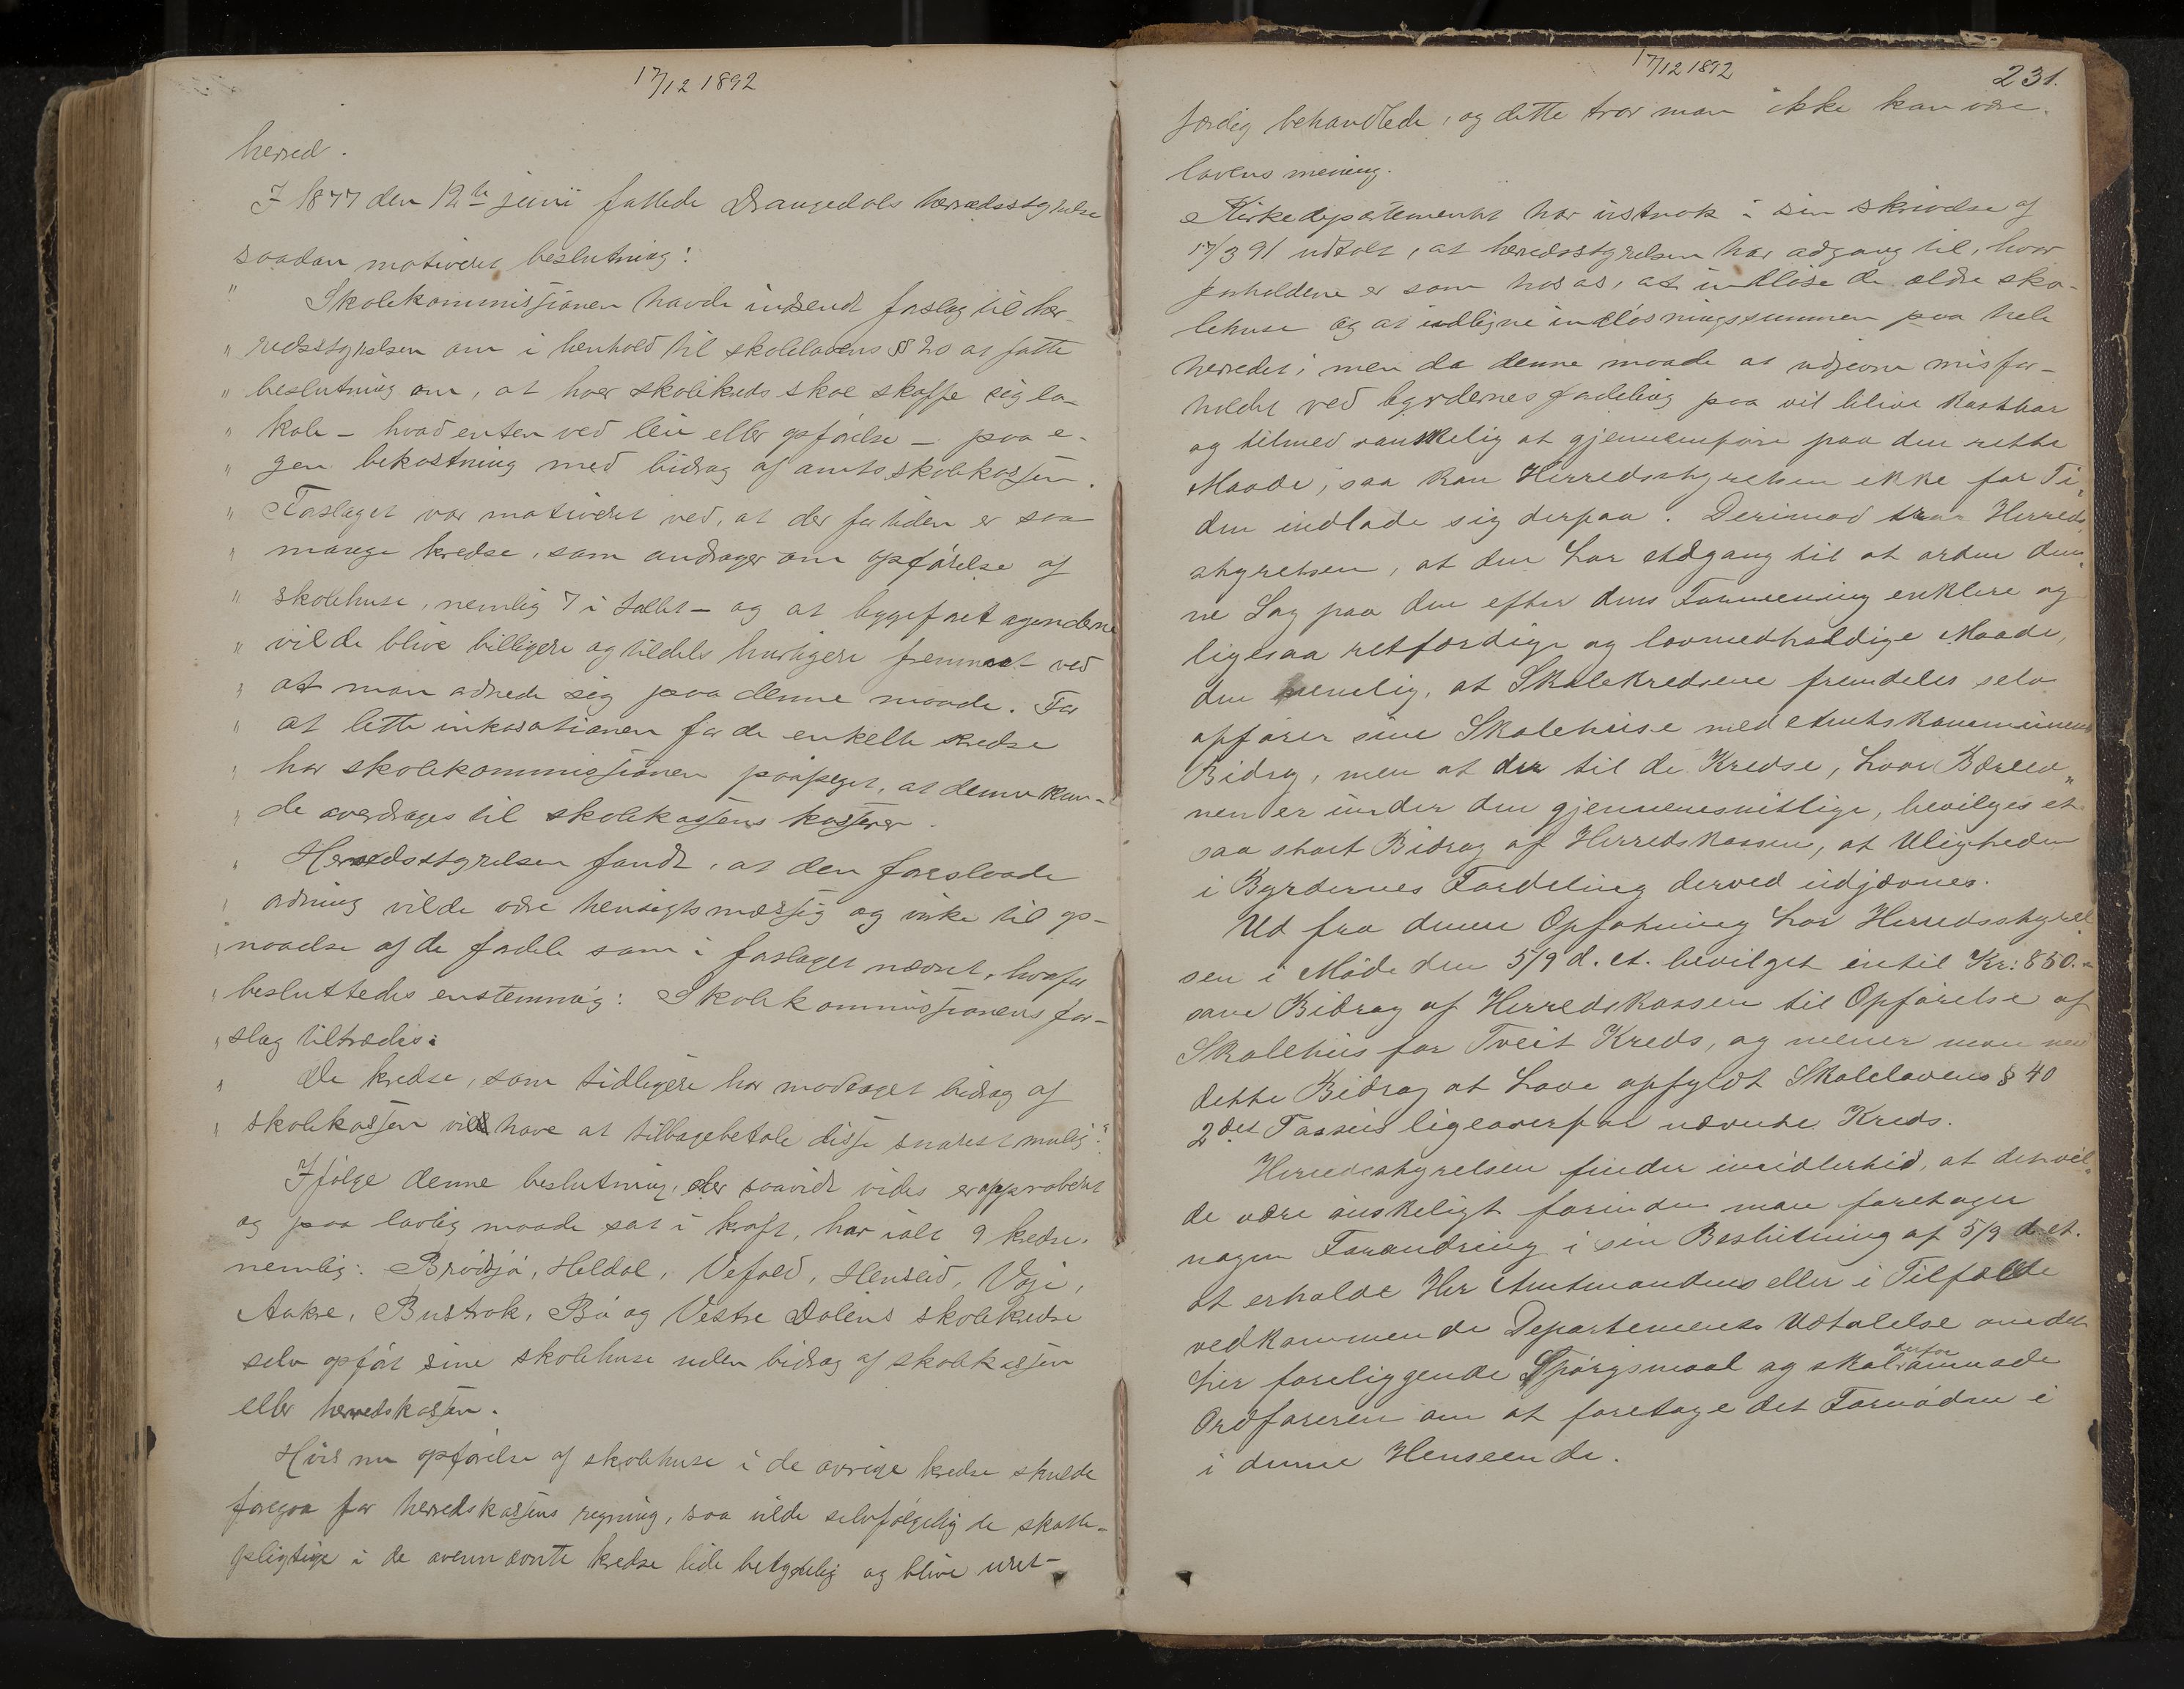 17/12 1892
herred.
I 1877 den 12te juni fattede Drangedals herredsstyrelse
saadan motiveret beslutning:
" Skolekommissionen havde indsendt forslag til her-
" redsstyrelsen om i henhold til skolelovens § 20 at fatte
" beslutning om, at hver skolekreds skal skaffe sig lo-
" kale – hvad enten ved leie eller opførelse – paa e-
" gen bekostning med bidrag af amtsskolekassen.
" Forslaget var motiveret ved, at der for tiden er saa
" mange kredse, som andrager om opførelse af
" skolehuse, nemlig 7 i tallet – og at byggeforetagenderne
" vilde blive billigere og tildels hurtigere fremmet ved
" at man ordnede sig paa denne maade. For
" at lette inkorationen for de enkelte kredse
" har skolekommissionen paapeget, at denne kun-
" de overdrages til skolekassens kasserer.
" Herredsstyrelsen fandt, at den foreslaaede
" ordning vilde være hensigtsmæssig og virke til op-
" naaelse af de fordele som i forslaget nævnt, hvorfor
" besluttedes enstemmig: Skolekommissionens for-
" slag tiltrædes:
" De kredse, som tidligere har modtaget bidrag af
" skolekassen vil have at tilbagebetale disse snarest mulig."
Ifølge denne beslutning, der saavidt vides er approberet
og paa lovlig maade sat i kraft, har ialt 9 kredse,
nemlig: Brødsjø, Heldal, Vefald, Henseid, Voje,
Aakre, Bustrak, Bø og Vestre Dalens skolekredse
selv opført sine skolehuse uden bidrag af skolekassen
eller herredskassen.
Hvis nu opførelse af skolehuse i de øvrige kredse skulde
foregaa for herredskassens regning, saa vilde selvfølgelig de skatte-
pligtige i de ovennævnte kredse lide betydelig og blive uret-
17/12 1892
231.
færdig behandlede, og dette tror man ikke kan være
lovens mening.
Kirkedepartementet har vistnok i sin skrivelse af
17/3 91 udtalt, at herredsstyrelsen har adgang til, hvor
forholdene er som hos os, at indløse de ældre sko-
lehuse og at udligne indløsningssummen paa hele
herredet; men da denne maade at udjevne misfor-
holdet ved byrdernes fordeling paa vil blive kostbar
og tilmed vanskelig at gjennemføre paa den rette
Maade, saa kan Herredsstyrelsen ikke for Ti-
den indlade sig derpaa. Derimod tror Herreds-
styrelsen, at den har Adgang til at ordne den-
ne Sag paa den efter dens Formening enklere og
ligesaa retfærdige og lovmedholdige Maade,
den nemlig, at Skolekredsene fremdeles selv
opfører sine Skolehuse med Amtskommunens
Bidrag, men at der til de Kredse, hvor Bæreev-
nen er under den gjennemsnittlige, bevilges et
saa stort Bidrag af Herredskassen, at Uligheden
i Byrdernes Fordeling derved udjævnes.
Ud fra denne Opfatning har Herredsstyrel-
sen i Møde den 5/9 d. A. bevilget indtil Kr: 850.-
som Bidrag af Herredskassen til Opførelse af
Skolehus for Tveit Kreds, og mener man ved
dette Bidrag at have opfyldt Skolelovens § 40
2det Passus ligeoverfor nævnte Kreds.
Herredsstyrelsen finder imidlertid, at det vil-
de være ønskeligt forinden man foretager
nogen Forandring i sin Beslutning af 5/9 d. A.
at erholde Hr Amtmandens eller i Tilfælde
vedkommende Departements Udtalelse om det
her foreliggende Spørgsmaal og skal derfor anmode
Ordføreren om at foretage det Fornødne i
i denne Henseende.